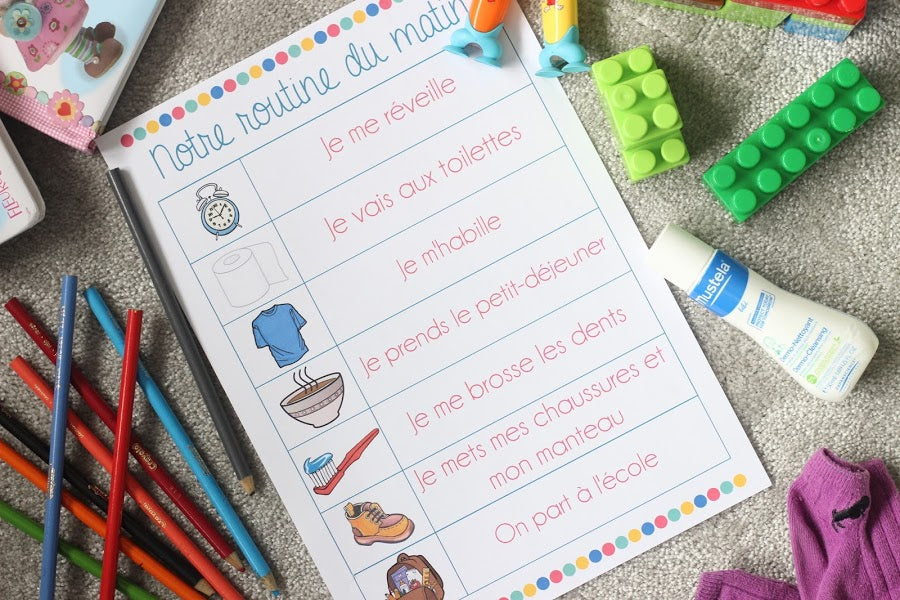 Notre routine du matin
Je me réveille
Je vais aux toilettes
Je m'habille
Je prends le petit-déjeuner
Je me brosse les dents
Je mets mes chaussures et
mon manteau
On part à l'école
Mustela
bébé
Dermo-Cleansing
Crayola